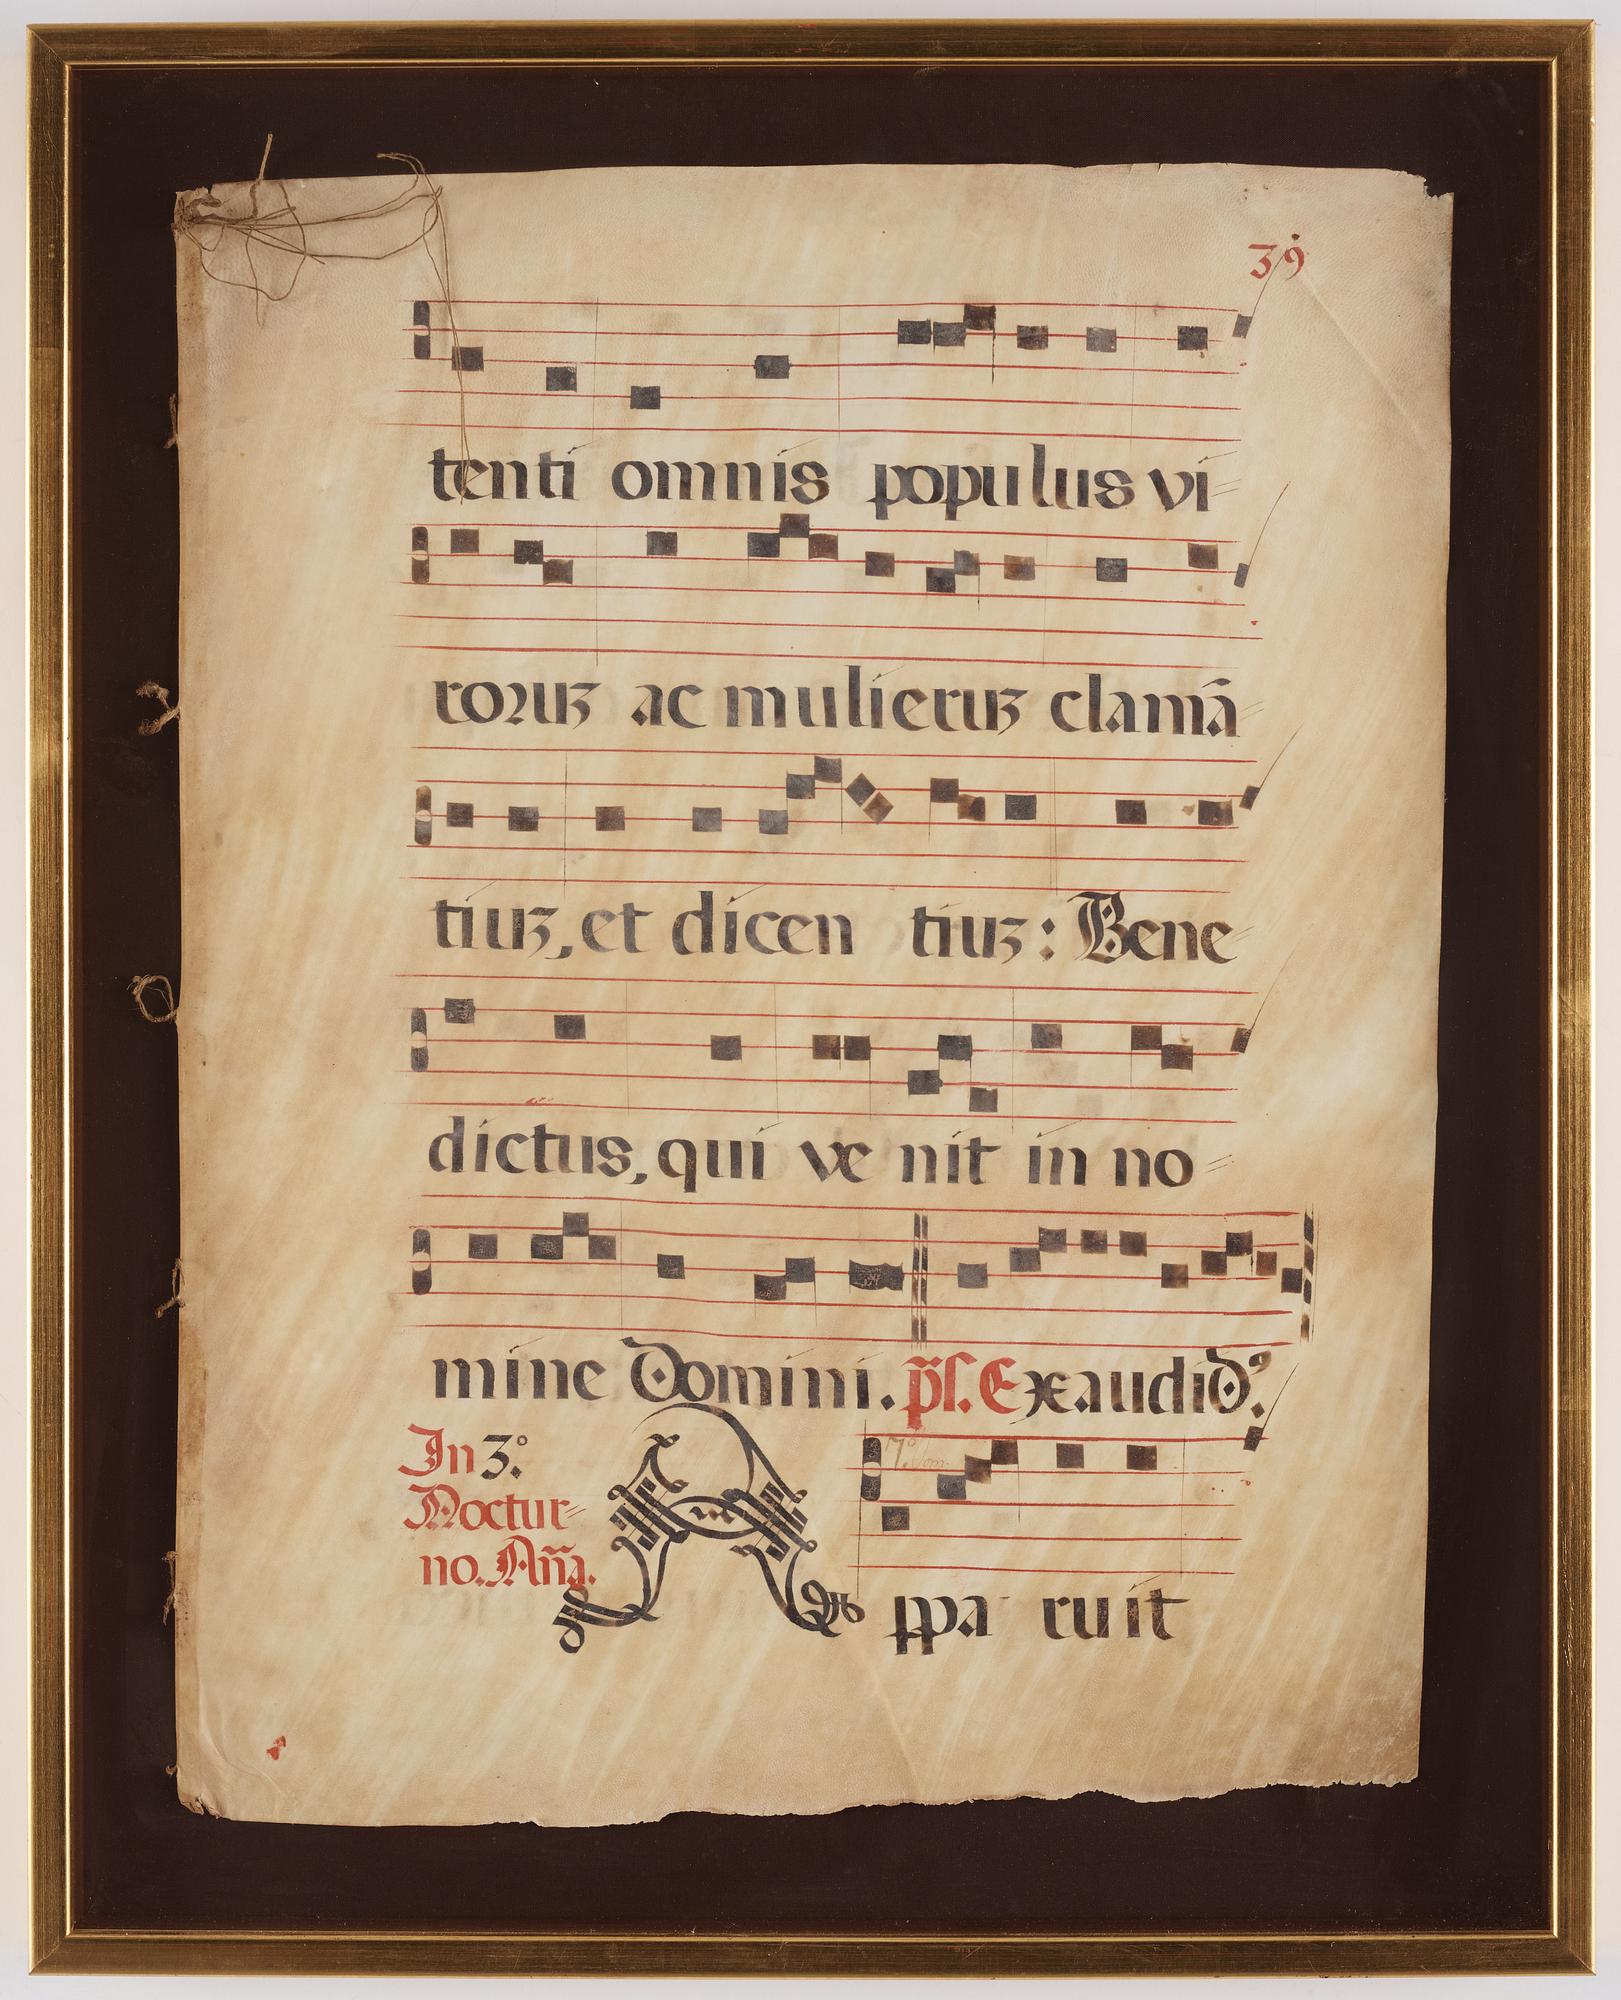 39
tenti omnis populus vi
roꝛuꝫ ac mulieruꝫ clamā
tiuꝫ, et dicen tiuꝫ: Bene
dictus, qui ve nit in no
mine Domini. p̃s. Exaudi D.⁹
In 3.º
Noctur
no. Añа.
A ppa ruit